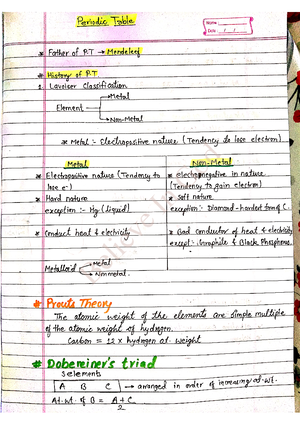 Periodic Table
Name
Date
* Father of P.T → Mendeleef
* History of P.T.
1. Lavoiser Classification
Element
Metal
Non-Metal
* Metal :- Electropositive nature (Tendency to lose electron)
Metal
* Electropositive nature (Tendency to
lose e-)
* Hard nature
exception :- Hg (Liquid)
* Conduct heat & electricity
Metalloid
Metal
Nonmetal
Non-Metal
* electronegative in nature
(Tendency to gain electron)
* Soft nature
exception:- Diamond-hardest form of C.
* Bad conductor of heat & electricity
except:- Graphite & Black Phosphorus.
# Prouts Theory
The atomic weight of the elements are simple multiple
of the atomic weight of hydrogen.
Carbon = 12 x hydrogen at. weight
# Dobereiner's triad
3 elements
[A B C] → arranged in order of increasing at.wt.
At.wt. of B = A + C
2